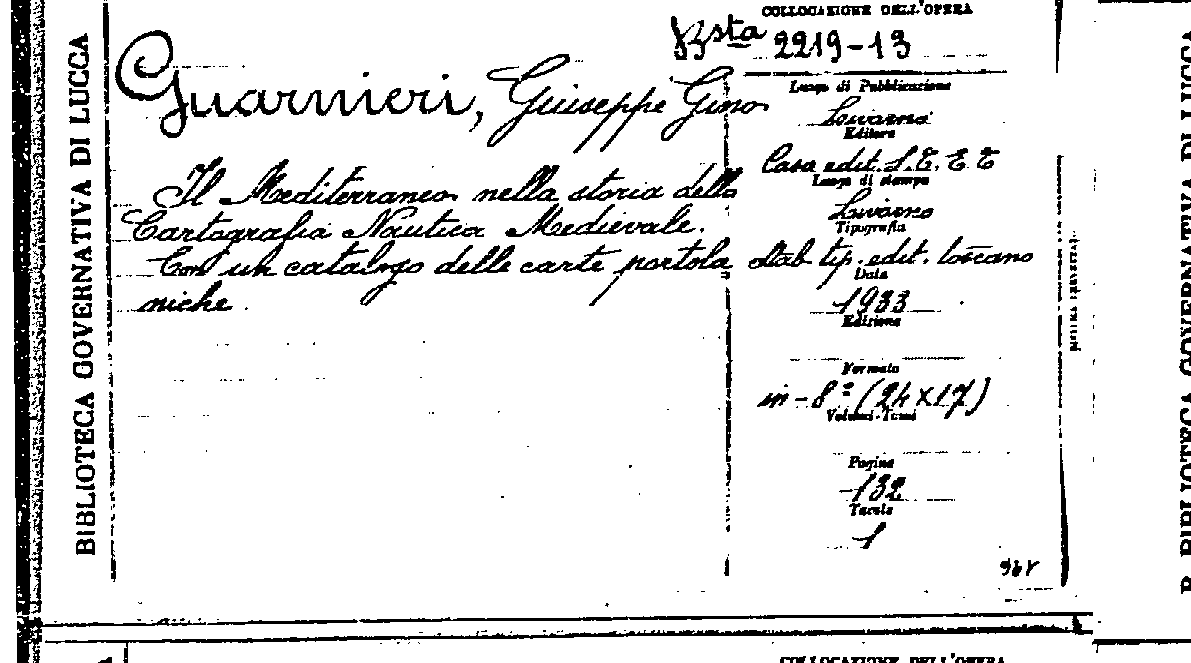 BIBLIOTECA GOVERNATIVA DI LUCCA
COLLOCAZIONE DELL'OPERA
Bsta 2219-13
Guarnieri, Giuseppe Gino
Il Mediterraneo nella storia della
Cartografia Nautica Medievale.
Con un catalogo delle carte portola
niche.
Luogo di Pubblicazione
Livorno
Editore
Casa edit. S.T.E.T
Luogo di stampa
Livorno
Tipografia
stab tip. edit. toscano
Data
1933
Edizione
Formato
in-8º (24x17)
Volumi-Tomi
Pagine
132
Tavole
1
COLLOCAZIONE DELL'OPERA